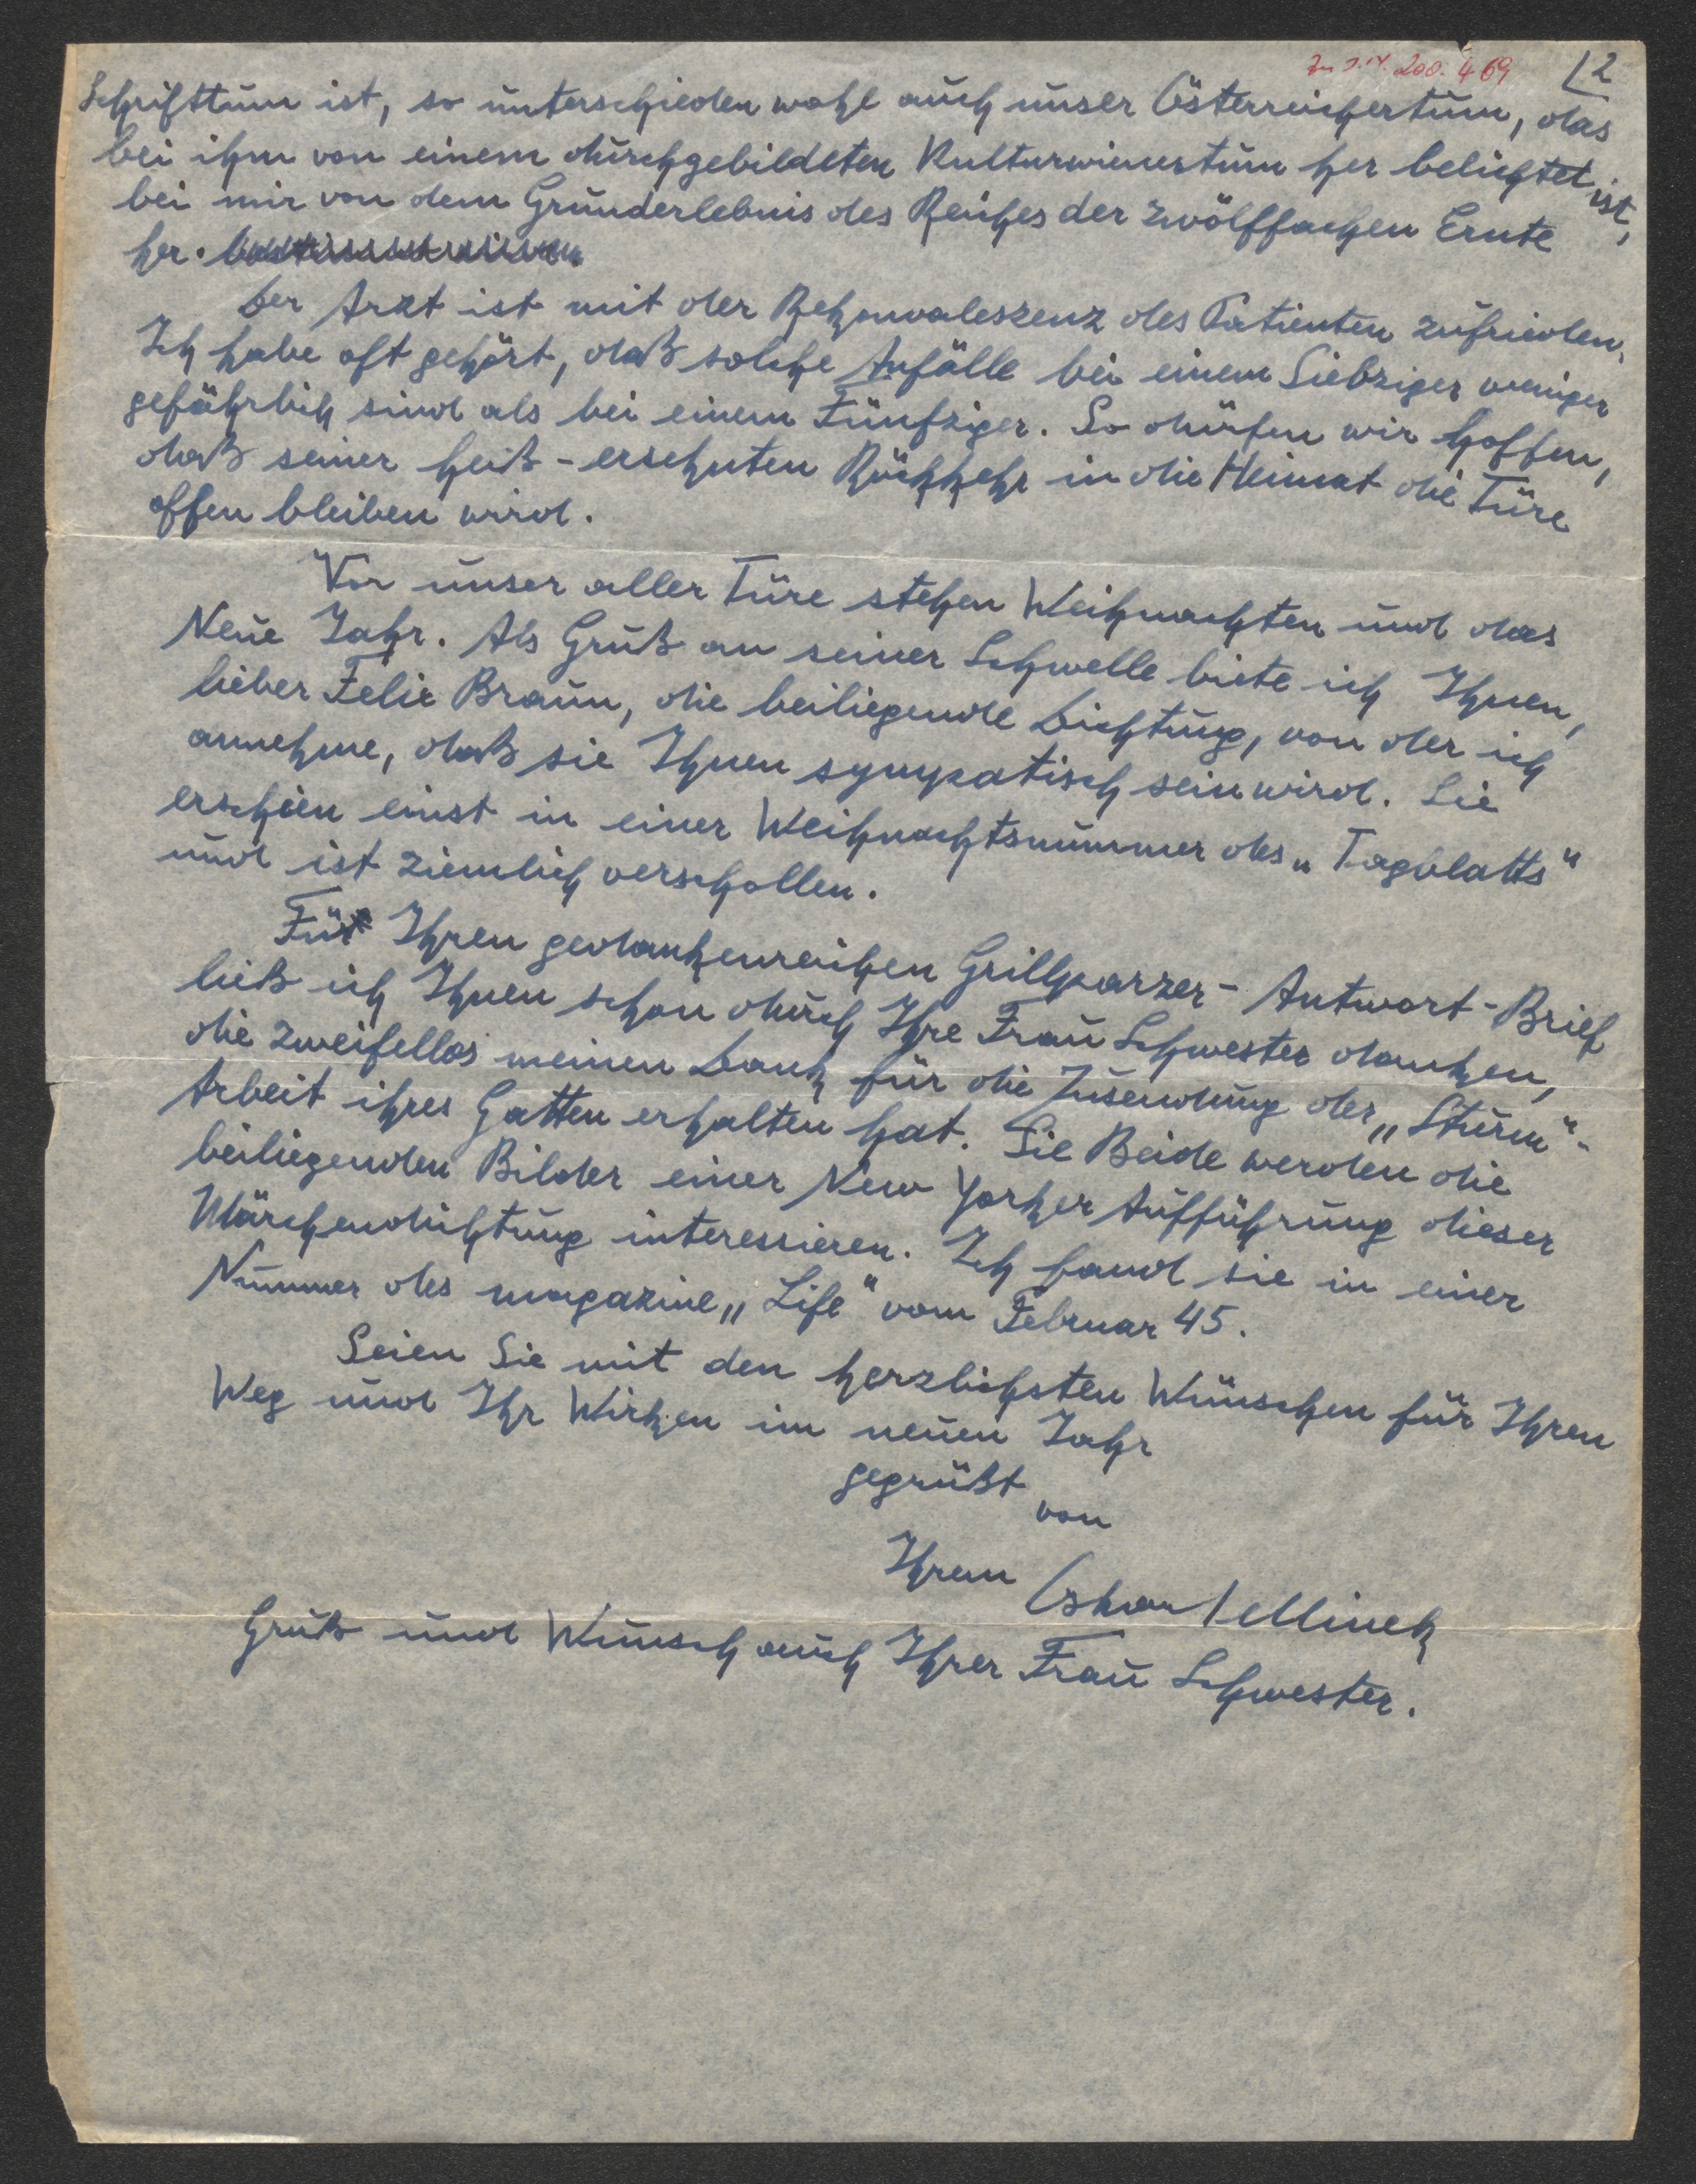 Zu I.N. 200.469
2
Schrifttum ist, so unterschieden wohl auch unser Österreichertum, das
bei ihm von einem durchgebildeten Kulturwienertum her belichtet ist,
bei mir von dem Grunderlebnis des Reiches der zwölffachen Ernte
her.
Der Arzt ist mit der Rekonvaleszenz des Patienten zufrieden.
Ich habe oft gehört, daß solche Anfälle bei einem Siebziger weniger
gefährlich sind als bei einem Fünfziger. So dürfen wir hoffen,
daß seiner heiß-ersehnten Rückkehr in die Heimat die Türe
offen bleiben wird.
Vor unser aller Türe stehen Weihnachten und das
Neue Jahr. Als Gruß an seiner Schwelle biete ich Ihnen,
lieber Felix Braun, die beiliegende Dichtung, von der ich
annehme, daß sie Ihnen sympatisch sein wird. Sie
erschien einst in einer Weihnachtsnummer des „Tagblatts"
und ist ziemlich verschollen.
Für Ihren gedankenreichen Grillparzer-Antwort-Brief
ließ ich Ihnen schon durch Ihre Frau Schwester danken,
die zweifellos meinen Dank für die Zusendung der „Sturm"-
Arbeit ihres Gatten erhalten hat. Sie Beide werden die
beiliegenden Bilder einer New Yorker Aufführung dieser
Märchendichtung interessieren. Ich fand sie in einer
Nummer des magazine „Life" vom Februar 45.
Seien Sie mit den herzlichsten Wünschen für Ihren
Weg und Ihr Wirken im neuen Jahr
gegrüßt
von
Ihrem Oskar Jellinek
Gruß und Wunsch auch Ihrer Frau Schwester.